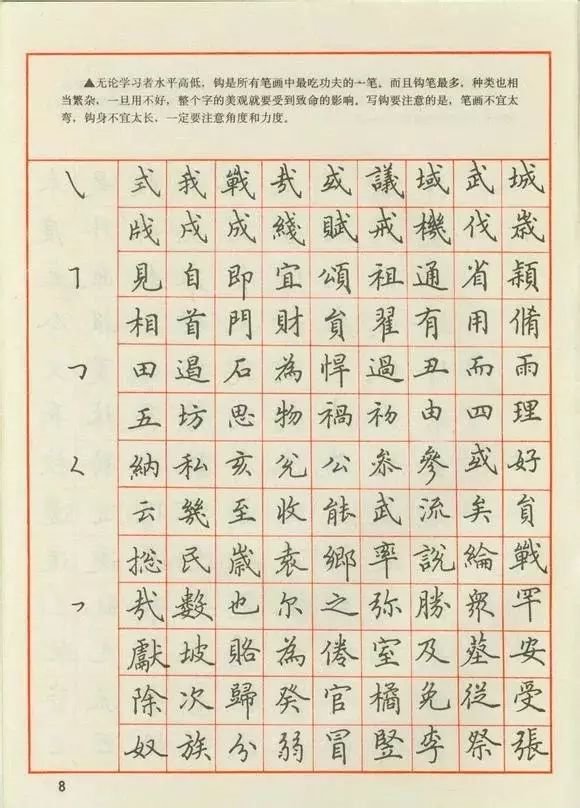 ▲无论学习者水平高低，钩是所有笔画中最吃功夫的一笔。而且钩笔最多，种类也相
当繁杂，一旦用不好，整个字的美观就要受到致命的影响。写钩要注意的是，笔画不宜太
弯，钩身不宜太长，一定要注意角度和力度。
式我戰哉或議域武城
戌成綫賦戒機伐歲
見自即宜頌祖通省穎
相首門財負翟有用脩
田遏石為悍過丑而雨
五坊思物禍初由四理
納私亥兊公叅參或好
云幾至收能武流矣負
捴民歲袁鄉率說綸戰
哉數也尔之弥勝眾罕
獻坡賂為倦室及蔡安
除次歸癸官橘免從受
奴族分弱冒竪李祭張
8